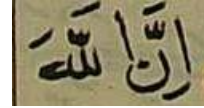 اِنَّ اللّٰهَ